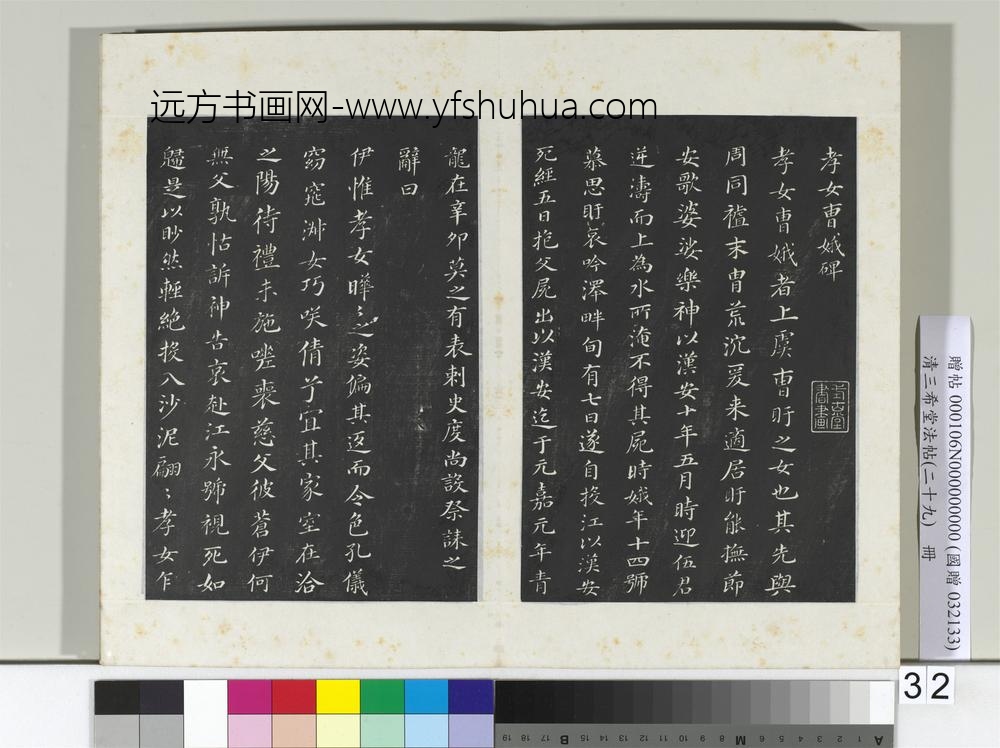 远方书画网-www.yfshuhua.com
孝女曺娥碑
孝女曺娥者上虞曺盱之女也其先與
周同襤末胄荒沉爰来適居盱能撫節
安歌婆娑樂神以漢安十年五月時迎伍君
逆濤而上為水所淹不得其屍時娥年十四號
慕思盱哀吟澤畔旬有七日遂自投江以漢安
死經五日抱父屍出以漢安迄于元嘉元年青
龍在辛卯莫之有表刺史度尚設祭誄之
辭曰
伊惟孝女曄〻之姿偏其返而令色孔儀
窈窕淑女巧咲倩兮宜其家室在洽
之陽待禮未施嗟喪慈父彼蒼伊何
無父孰怙訴神告哀赴江永號視死如
歸是以眇然輕絶投入沙泥翩〻孝女乍
贈帖 000106N000000000 (國贈 032133)
清三希堂法帖(二十九) 冊
32